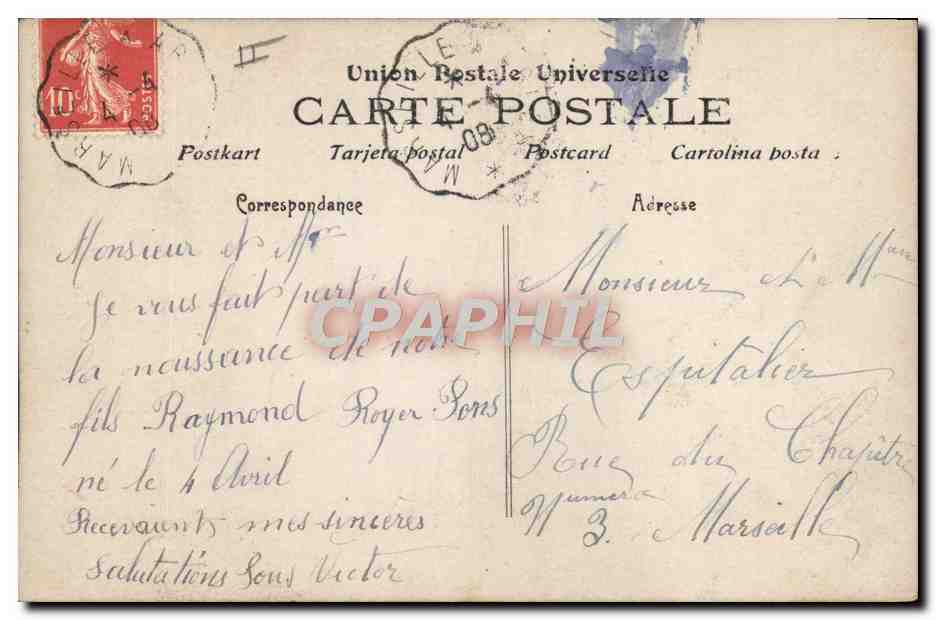 10c
POSTES
MARSEILLE
4-4
08
MARSEILLE
4-4
08
Union Postale Universelle
CARTE POSTALE
Postkart Tarjeta postal Postcard Cartolina posta
Correspondance
Adresse
Monsieur et Mme
Je vous fait part de
la naissance de notre
fils Raymond Royer Pons
né le 4 Avril
Recevaient mes sinceres
Salutations Pons Victor
Monsieur et Mme
Espitalier
Rue du Chapître
Numero
3. Marseille
CPAPHIL